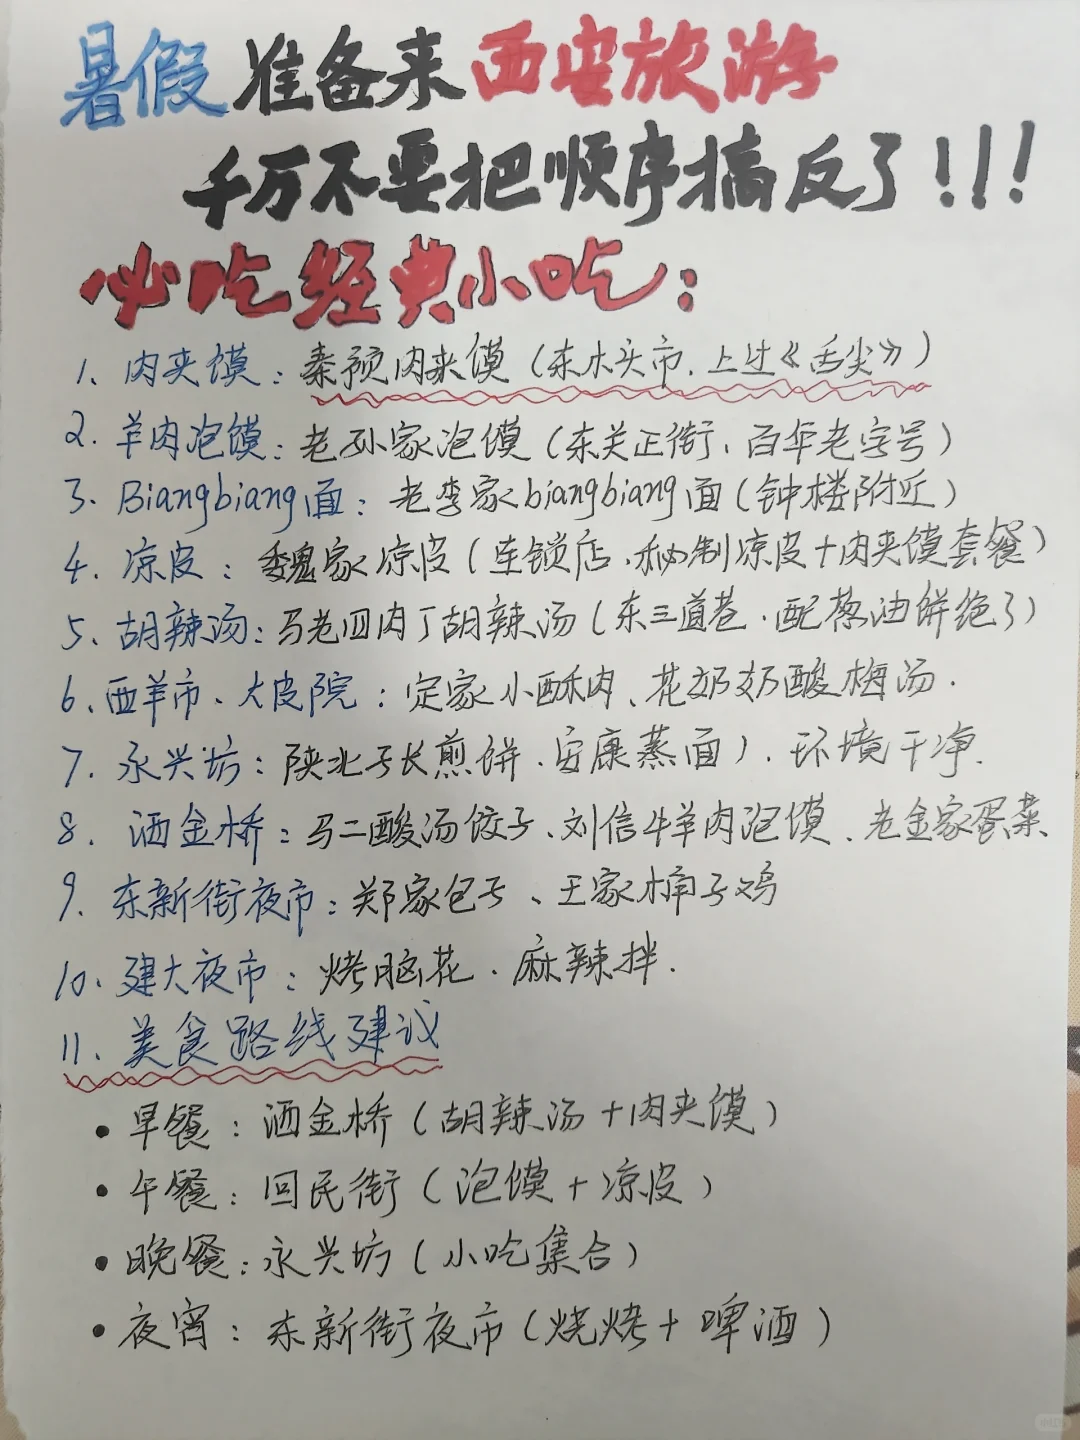 暑假准备来西安旅游
千万不要把顺序搞反了!!!
必吃经典小吃:
1、肉夹馍:秦豫肉夹馍(东木头市、上过《舌尖》)
2.羊肉泡馍:老孙家泡馍(东关正街、百年老字号)
3.Biangbiang面:老李家biangbiang面(钟楼附近)
4.凉皮:魏家凉皮(连锁店、秘制凉皮+肉夹馍套餐)
5、胡辣汤:马老四肉丁胡辣汤(东三道巷·配葱油饼绝了)
6、西羊市、大皮院:定家小酥肉、花奶奶酸梅汤.
7.永兴坊:陕北子长煎饼、安康蒸面)、环境干净.
8.洒金桥:马二酸汤饺子、刘信牛羊肉泡馍、老金家蛋菜
9.东新街夜市:郑家包子、王家桶子鸡
10、建大夜市:烤脑花·麻辣拌.
11、美食路线建议
•早餐:洒金桥(胡辣汤+肉夹馍)
•午餐:回民街(泡馍+凉皮)
•晚餐:永兴坊(小吃集合)
•夜宵:东新街夜市(烧烤+啤酒)